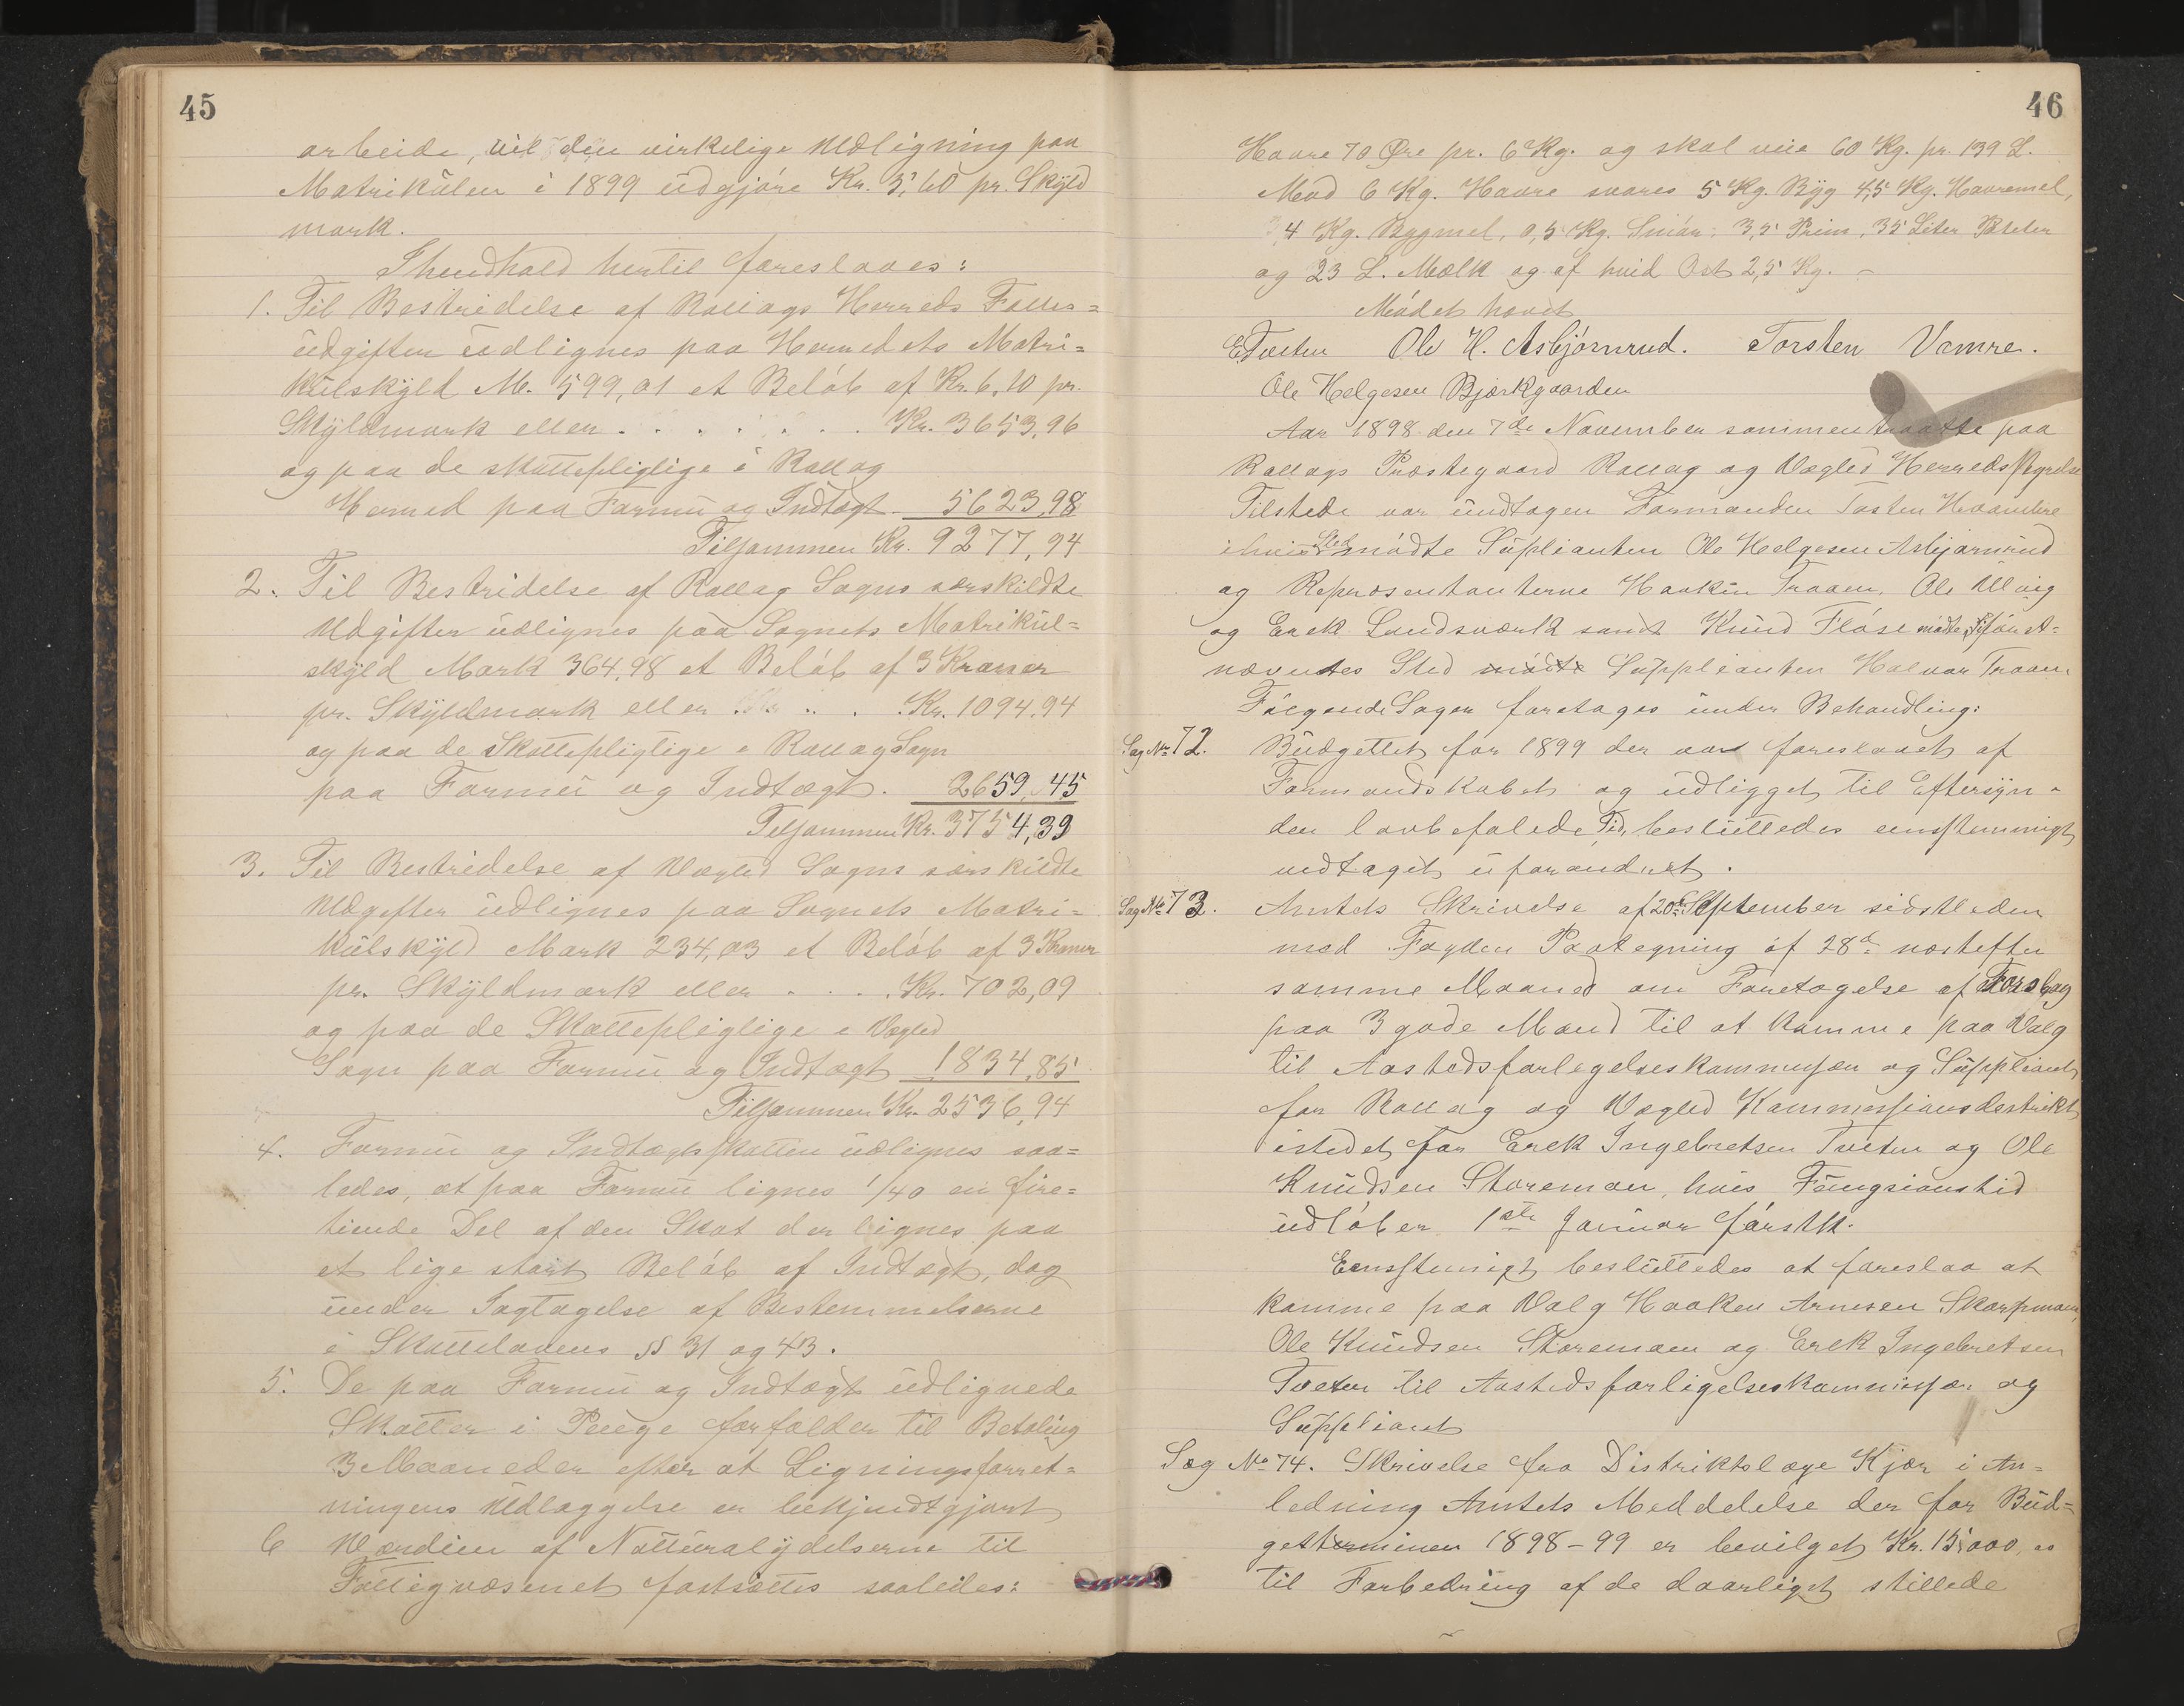 45
arbeide, vil den virkelige Udligning paa
Matrikulen i 1899 udgjøre Kr. 5,60 pr. Skyld
mark.
I henhold hertil foreslaaes:
1. Til Bestridelse af Rollags Herreds Fælles=
udgifter udlignes paa Herredets Matri=
kulskyld M. 599,01 et Beløb af Kr. 6,10 pr.
Skyldmark eller . . . . . . . Kr. 3653,96
og paa de skattepligtige i Rollag
Herred paa Formu og Indtægt 5623,98
Tilsammen Kr. 9277,94
2. Til Bestridelse af Rollag Sogns særskildte
Udgifter udlignes paa Sognets Matrikul=
skyld Mark 364,98 et Beløb af 3 Kroner
pr. Skyldmark eller . . . Kr. 1094,94
og paa de Skattepligtige i Rollag Sogn
paa Formu og Indtægt. 2659,45
Tilsammen Kr. 3754,39
3. Til Bestridelse af Vægled Sogns særskildte
Udgifter udlignes paa Sognets Matri=
kulskyld Mark 234,03 et Beløb af 3 Kroner
pr. Skyldmark eller . . . Kr. 702,09
og paa de Skattepligtige i Vægled
Sogn paa Formu og Indtægt 1834,85
Tilsammen Kr. 2536,94
4. Formu og Indtægtsskatten udlignes saa=
ledes, at paa Formu lignes 1/40 en fire=
tiende Del af den Skat der lignes paa
et lige stort Beløb af Indtægt, dog
under Iagtagelse af Bestemmelserne
i Skattelovens §§ 31 og 43.
5. De paa Formu og Indtægt udlignede
Skatter i Penge forfalder til Betaling
3 Maaneder efter at Ligningsforret=
ningens Udlæggelse er bekjendtgjort
6 Værdien af Naturalydelserne til
Fattigvæsenet fastsættes saaledes:
46
Havre 70 Øre pr. 6 Kg. og skal veie 60 Kg. pr. 139 L.
Mod 6 Kg. Havre svares 5 Kg. Byg 4,5 Kg. Havremel,
4 Kg. Bygmel, 0,5 Kg. Smør, 3,5 Prim, 35 Liter Poteter
og 23 L. Mælk og af hvid Ost 2,5 Kg. –
Mødet hævet
E Tveten Ole H. Asbjørnrud. Torsten Vamre.
Ole Helgesen Bjørkgaarden
Aar 1898 den 7de November sammentraadte paa
Rollags Præstegaard Rollag og Vægled Herredsstyrelse
Tilstede var undtagen Formanden Tosten Hvaambre
i hvis Sted mødte Suplianten Ole Helgesen Asbjørnrud
og Repræsentanterne Haaken Traaen, Ole Ulvig
og Erek Landsværk samt Knud Fløse mødte, i først=
nævntes Sted mødte Supplianten Halvor Traaen.
Følgende Sager foretages under Behandling:
Sag No 72. Budgettet for 1899 der var foreslaaet af
Formandskabet og udligget til Eftersyn
den lovbefalede Tid, besluttedes enstemmigt
vedtaget uforandret.
Sag No 73. Amtets Skrivelse af 20de September sidstleden
med Fogden Paategning af 28de næstefter
samme Maaned om Foretagelse af Forslag
paa 3 gode Mænd til at komme paa Valg
til Aastedsforlegelseskommisjær og Suppliant
for Rollag og Vægled Kommissionsdestrikt
istedet for Erek Ingebretsen Tveten og Ole
Knudsen Storemoen, hvis Fungsionstid
udløber 1ste Januar førstk.
Eensstemigt besluttedes at foreslaa at
komme paa Valg Haaken Arnesen Skarpmoen,
Ole Knudsen Storemoen og Erek Ingebretsen
Tveten til Aastedsforligelseskommissær og
Suppliant
Sag No 74. Skrivelse fra Distriktslæge Kjær i An=
ledning Amtets Meddelelse der for Bud=
getterminen 1898–99 er bevilget Kr. 15000,00
til Forbedring af de daarligst stillede